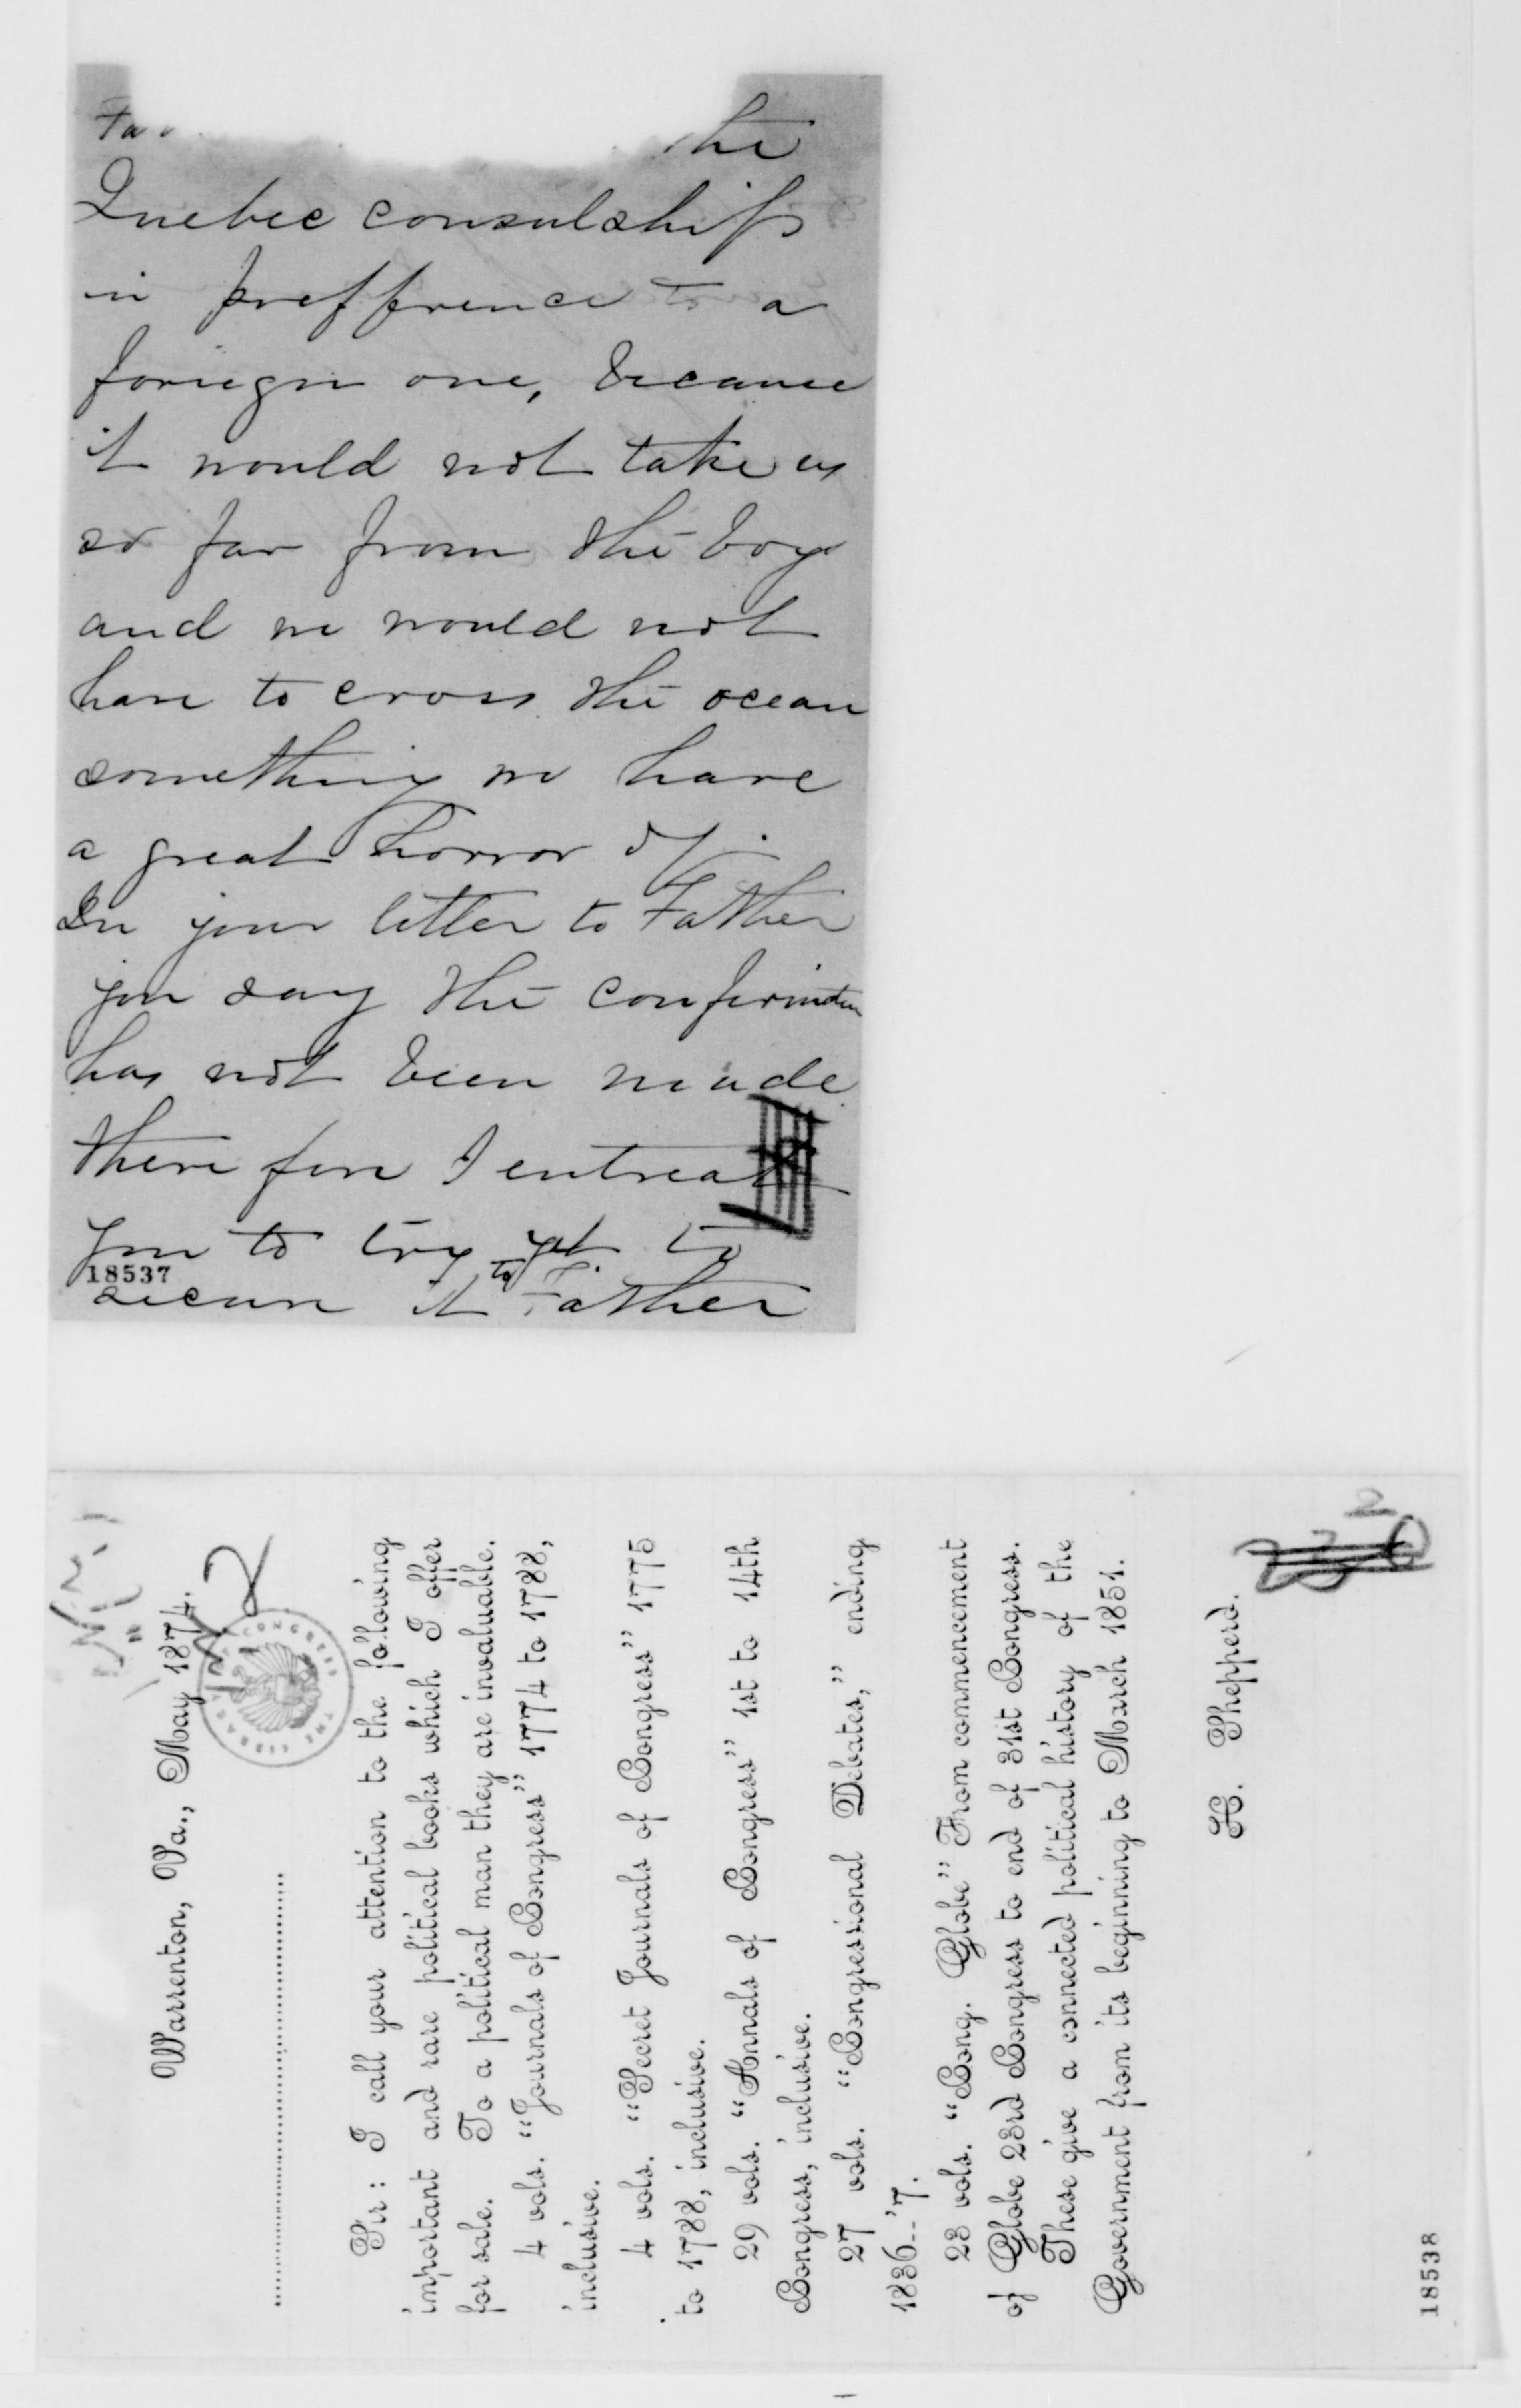 the
Quebec consulship
in prefference to a
foriegn one, because
it would not take us
so far from the boys
and we would not
have to cross the ocean
something we have
a great horror of.
In your letter to Father
you say the confirmation
has not been made
there fore I entreat
you to try yet to
secure it to Father
18537
Warrenton, Va., May 1874.
Sir: I call your attention to the following
important and rare political books which I offer
for sale. To a political man they are invaluable.
4 vols. "Journals of Congress" 1774 to 1788,
inclusive.
4 vols. "Secret Journals of Congress" 1775
to 1788, inclusive.
29 vols. "Annals of Congress" 1st to 14th
Congress, inclusive.
27 vols. "Congressional Debates," ending
1836--'7.
23 vols. "Cong. Globe" From commencement
of Globe 23rd Congress to end of 31st Congress.
These give a connected political history of the
Government from its beginning to March 1851.
H. Shepperd.
18538